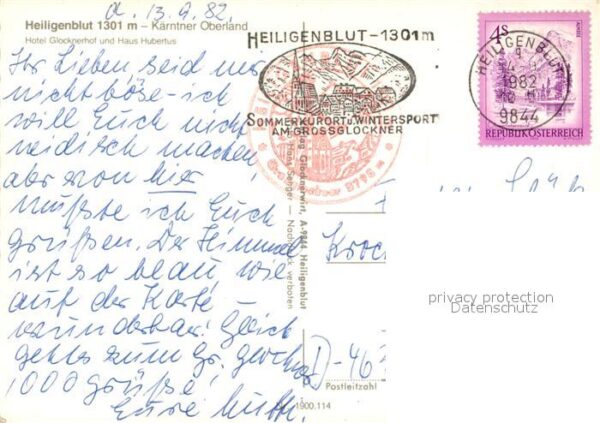 a. 13.9.82.
Heiligenblut 1301 m – Kärntner Oberland
Hotel Glocknerhof und Haus Hubertus
Ihr Lieben seid mir
nicht böse - ich
will Euch nicht
neidisch machen
aber von hier
müßte ich Euch
grüßen. Der Himmel
ist so blau wie
auf der Karte -
wunderbar! Gleich
gehts zum Gr. Glockner
1000 grüße!
Eure
HEILIGENBLUT - 1301 m
SOMMERKURORT U. WINTERSPORT
AM GROSSGLOCKNER
HEILIGENBLUT
1982
9844
4S
REPUBLIK ÖSTERREICH
Glocknerwirt, A-9844 Heiligenblut
Hans Senger — Nachdruck verboten
3798 m
Kroc
D-46
Postleitzahl
1900.114
privacy protection
Datenschutz